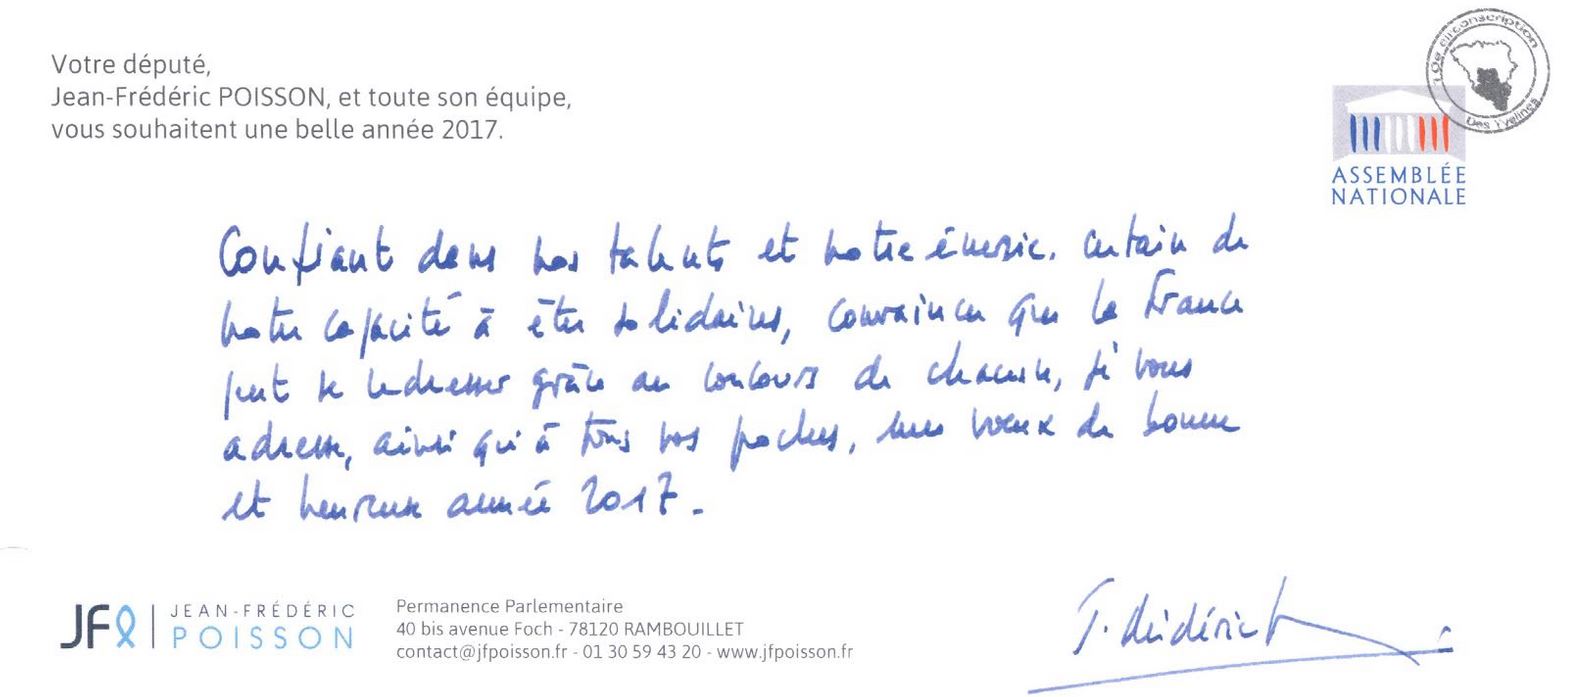 Votre député,
Jean-Frédéric POISSON, et toute son équipe,
vous souhaitent une belle année 2017.
10e circonscription
Des Yvelines
ASSEMBLÉE
NATIONALE
Confiant dans nos talents et notre énergie, certain de
notre capacité à être solidaires, convaincu que la France
peut se redresser grâce au concours de chacun, je vous
adresse, ainsi qu'à tous vos proches, mes vœux de bonne
et heureuse année 2017.
J. Frédéric
JF | JEAN-FRÉDÉRIC
POISSON
Permanence Parlementaire
40 bis avenue Foch - 78120 RAMBOUILLET
contact@jfpoisson.fr - 01 30 59 43 20 - www.jfpoisson.fr